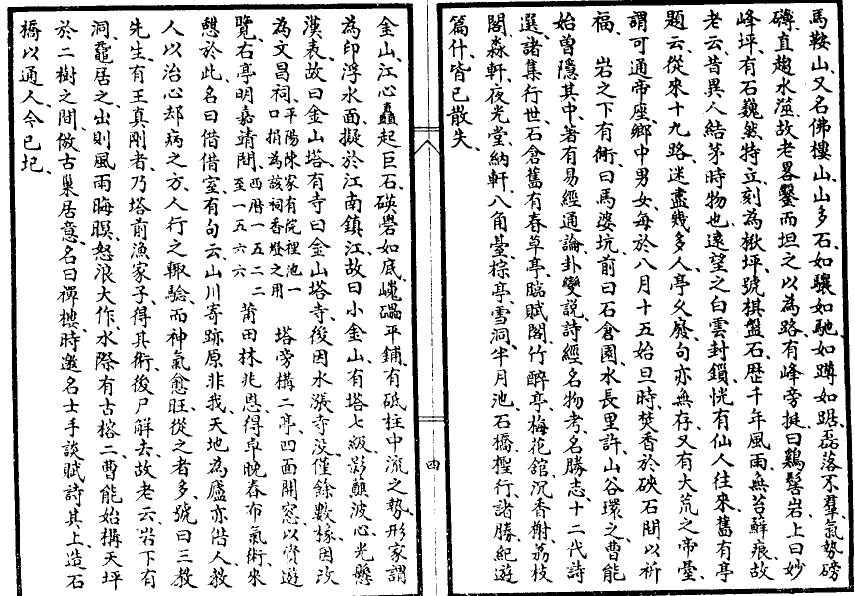 馬鞍山、又名佛樓山、山多石、如驤如馳、如蹲如踞、磊落不羣、氣勢磅
礴、直趨水滋、故老畧鑿而坦之以為路、有峰旁挺、曰鷄髻岩、上曰妙
峰坪、有石巍然特立、刻為楸坪、號棋盤石、歷千年風雨無苔蘚痕、故
老云昔異人結茅時物也、遠望之白雲封鎖、恍有仙人往來、舊有亭
題云、從來十九路迷盡幾多人、亭父廢、句亦無存、又有大荒之帝臺、
謂可通帝座、鄉中男女、每於八月十五始旦時、焚香於砆石間以祈
福、　岩之下有術、曰馬婆坑、前曰石倉園、水長里許、山谷環之、曹能
始曾隱其中、著有易經通論、卦變說、詩經名物考、名勝志、十二代詩
選、諸集行世、石倉舊有春草亭、臨賦閣、竹醉亭、梅花館、沉香榭、荔枝
閣、淼軒、夜光堂、納軒、八角臺、棕亭、雪洞、半月池、石橋、檉行諸勝、紀遊
篇什、皆已散失、
金山、江心矗起巨石、磈礐如底、巉礧平鋪、有砥柱中流之勢、形家謂
為印浮水面、擬於江南鎮江、故曰小金山、有塔七級、影蘸波心、光懸
漢表、故曰金山塔、有寺曰金山塔寺、後因水漲寺没、僅餘數椽、因改
為文昌祠、平陽陳家有院裡池一口捐為該祠香燈之用　塔旁構二亭、四面開窓、以資遊
覽、右亭明嘉靖間、西曆一五二二至一五六六　莆田林兆恩、得卓晚春布氣術、來
憩於此、名曰借借室、有句云、山川寄跡原非我、天地為廬亦借人、教
人以治心却病之方、人行之輒驗、而神氣愈旺、從之者多、號曰三教
先生、有王真剛者、乃塔前漁家子、得其術、後尸解去、故老云、岩下有
洞、黿居之、出則風雨晦暝、怒浪大作、水際有古榕二、曹能始構天坪
於二樹之間、倣古巢居意、名曰禪樓、時邀名士手談賦詩其上、造石
橋以通人、今已圮、
四